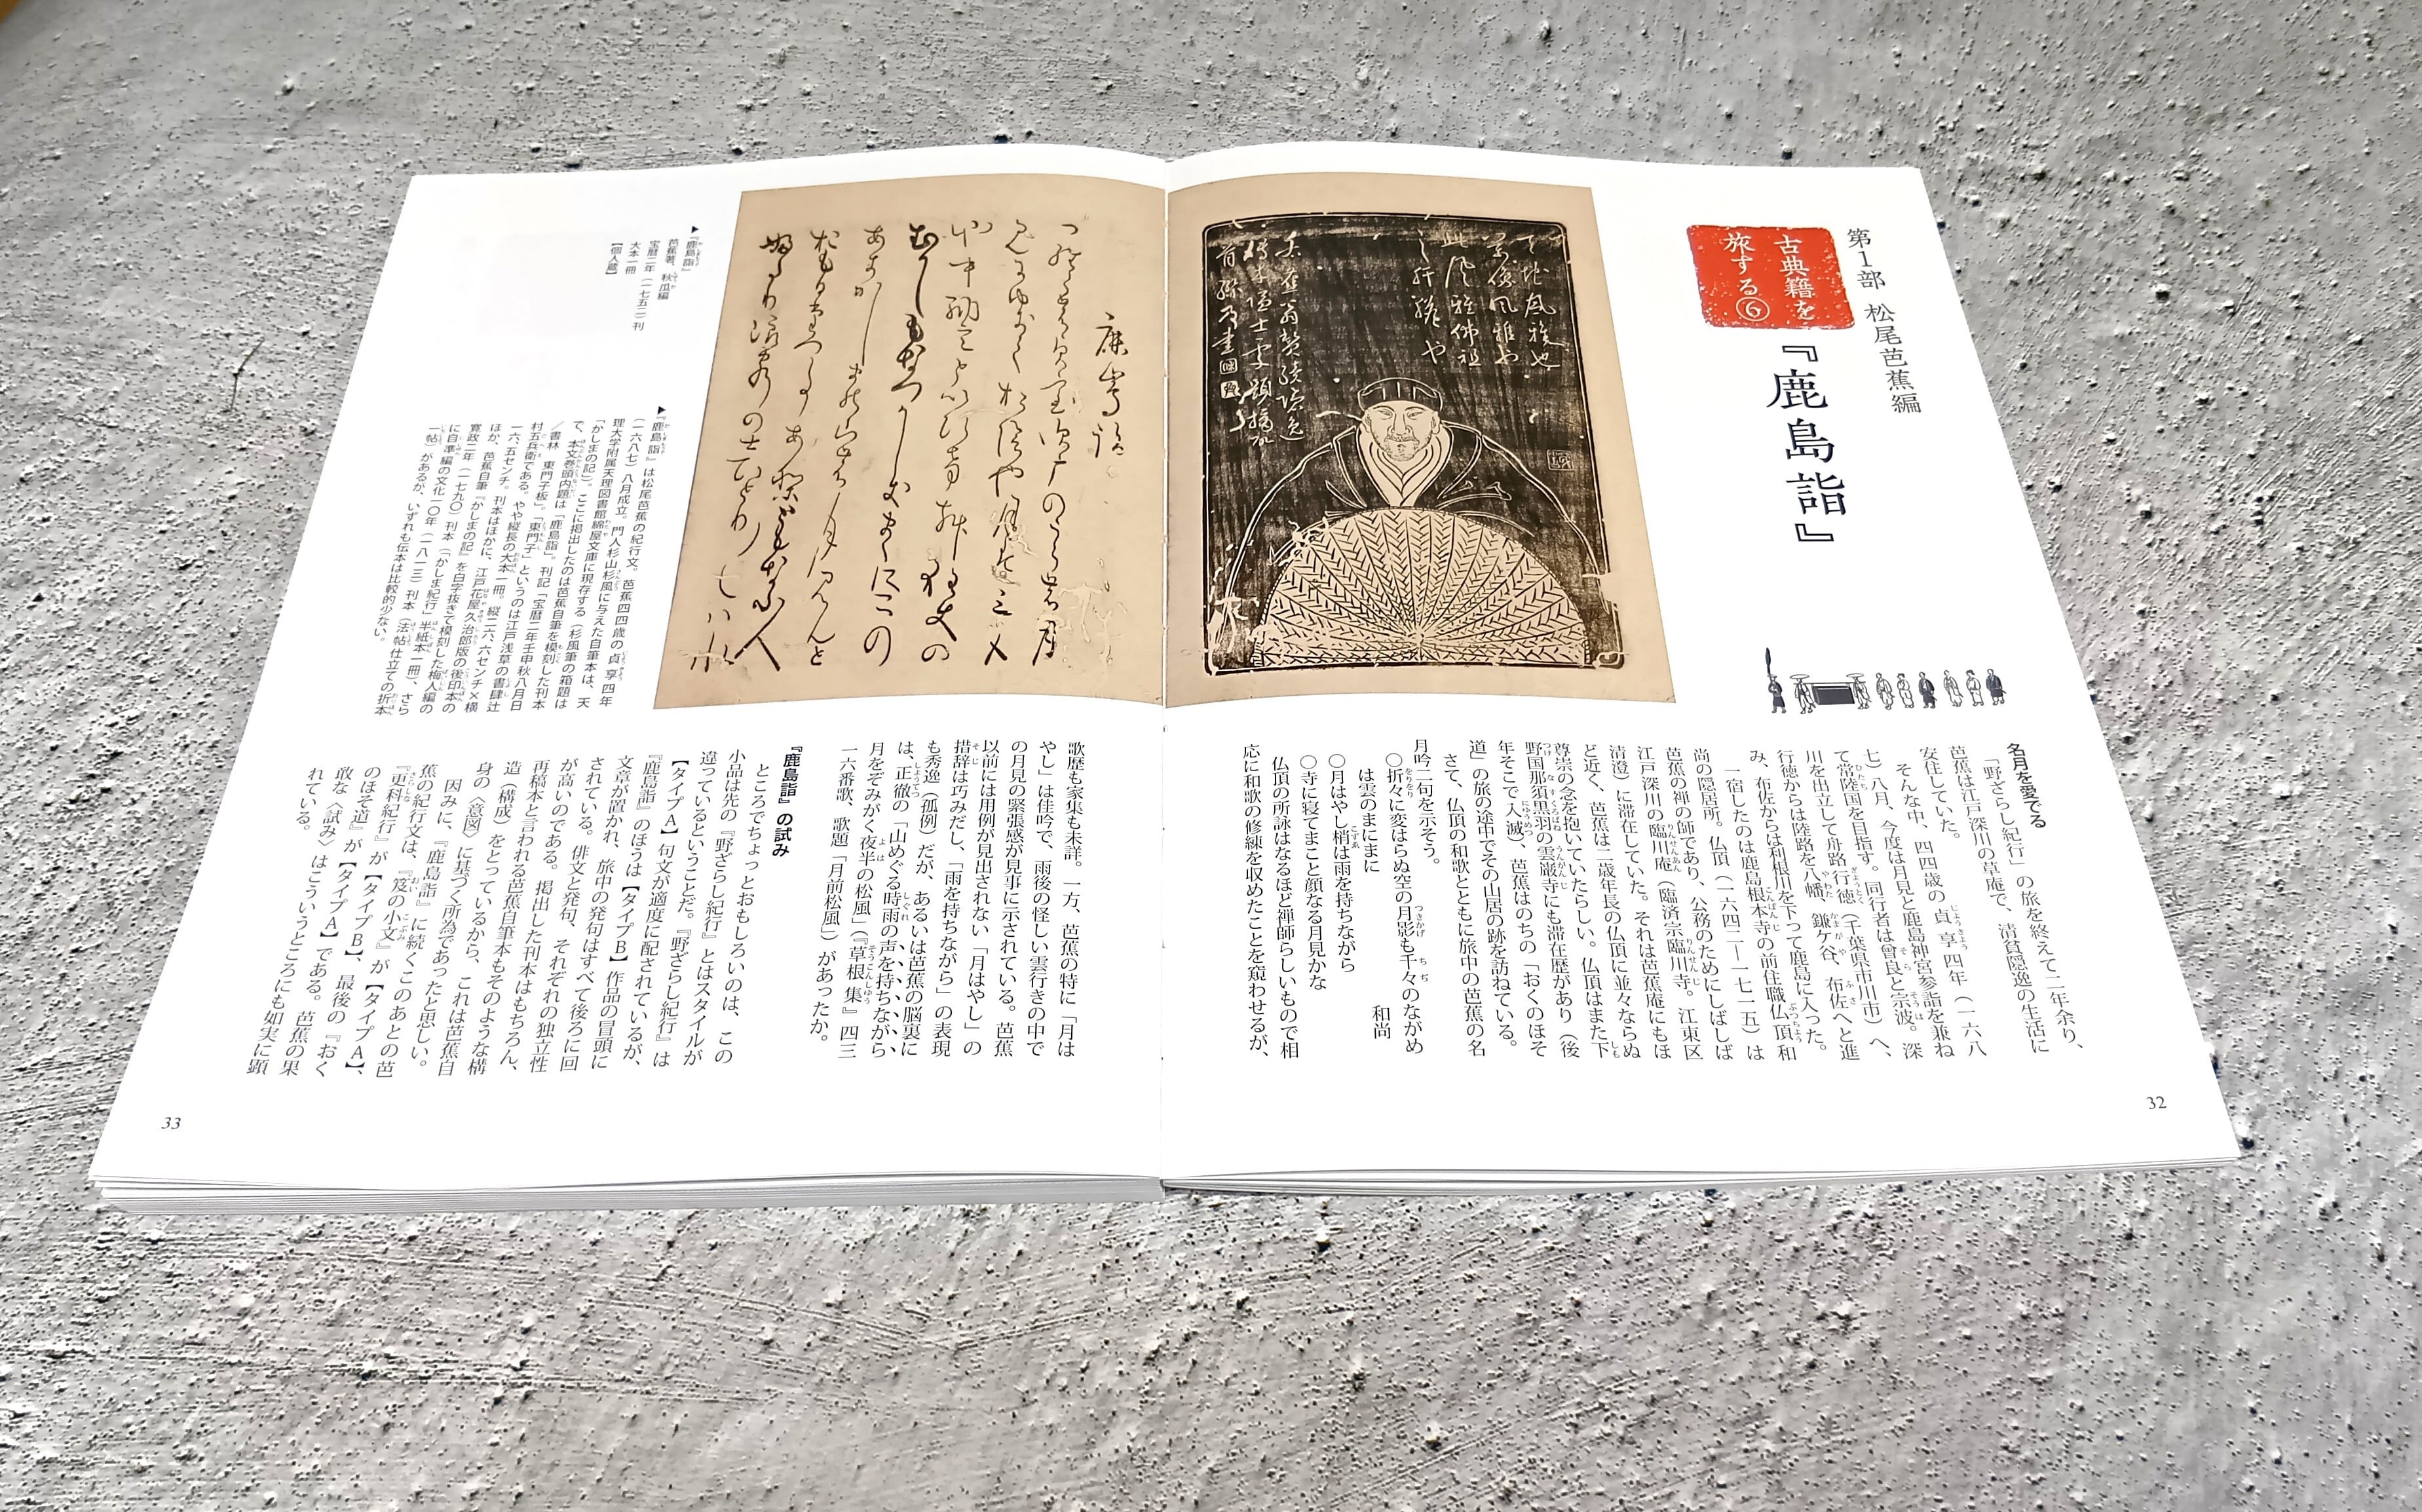 第1部 松尾芭蕉編
古典籍を
旅する⑥
『鹿島詣』
名月を愛でる
『野ざらし紀行』の旅を終えて二年余り、
芭蕉は江戸深川の草庵で、清貧隠逸の生活に
安住していた。
そんな中、四四歳の貞享四年（一六八
七）八月、今度は月見と鹿島神宮参詣を兼ね
て常陸国を目指す。同行者は曾良と宗波。深
川を出立して舟路行徳（千葉県市川市）へ、
行徳からは陸路を八幡、鎌ケ谷、布佐へと進
み、布佐からは利根川を下って鹿島に入った。
一宿したのは鹿島根本寺の前住職仏頂和
尚の隠居所。仏頂（一六四二―一七一五）は
芭蕉の禅の師であり、公務のためにしばしば
江戸深川の臨川庵（臨済宗臨川寺。江東区
清澄）に滞在していた。それは芭蕉庵にもほ
ど近く、芭蕉は二歳年長の仏頂に並々ならぬ
尊崇の念を抱いていたらしい。仏頂はまた下
野国那須黒羽の雲巌寺にも滞在歴があり（後
年そこで入滅）、芭蕉はのちの『おくのほそ
道』の旅の途中でその山居の跡を訪ねている。
さて、仏頂の和歌とともに旅中の芭蕉の名
月吟二句を示そう。
○折々に変はらぬ空の月影も千々のながめ
は雲のまにまに
和尚
○月はやし梢は雨を持ちながら
○寺に寝てまこと顔なる月見かな
仏頂の所詠はなるほど禅師らしいもので相
応に和歌の修練を収めたことを窺わせるが、
32
鹿島詣
▶『鹿島詣』
芭蕉著、秋瓜編
宝暦二年（一七五二）刊
大本一冊
【個人蔵】
▶『鹿島詣』は松尾芭蕉の紀行文。芭蕉四四歳の貞享四年
（一六八七）八月成立。門人杉山杉風に与えた自筆本は、天
理大学附属天理図書館綿屋文庫に現存する（杉風筆の箱題は
「かしまの記」）。ここに掲出したのは芭蕉自筆を模刻した刊本
で、本文巻頭内題は「鹿島詣」。刊記「宝暦二年壬申秋八月日
／書林　東門子板」。「東門子」というのは江戸浅草の書肆辻
村五兵衛である。やや縦長の大本一冊。縦二六、六センチ×横
一六、五センチ。刊本はほかに、江戸花屋久治郎版の後印本の
ほか、芭蕉自筆『かしまの記』を白字抜きで模刻した梅人編の
寛政二年（一七九〇）刊本（『かしま紀行』半紙本一冊）、さら
に自準編の文化一〇年（一八一三）刊本（法帖仕立ての折本
一帖）があるが、いずれも伝本は比較的少ない。
歌歴も家集も未詳。一方、芭蕉の特に「月は
やし」は佳吟で、雨後の怪しい雲行きの中で
の月見の緊張感が見事に示されている。芭蕉
以前には用例が見出されない「月はやし」の
措辞は巧みだし、「雨を持ちながら」の表現
も秀逸（孤例）だが、あるいは芭蕉の脳裏に
は、正徹の「山めぐる時雨の声を持ちながら
月をぞみがく夜半の松風」（『草根集』四三
一六番歌、歌題「月前松風」）があったか。
『鹿島詣』の試み
ところでちょっとおもしろいのは、この
小品は先の『野ざらし紀行』とはスタイルが
違っているということだ。『野ざらし紀行』は
【タイプA】句文が適度に配されているが、
『鹿島詣』のほうは【タイプB】作品の冒頭に
文章が置かれ、旅中の発句はすべて後ろに回
されている。俳文と発句、それぞれの独立性
が高いのである。掲出した刊本はもちろん、
再稿本と言われる芭蕉自筆本もそのような構
造（構成）をとっているから、これは芭蕉自
身の〈意図〉に基づく所為であったと思しい。
因みに、『鹿島詣』に続くこのあとの芭
蕉の紀行文は、『笈の小文』が【タイプA】、
『更科紀行』が【タイプB】、最後の『おく
のほそ道』が【タイプA】である。芭蕉の果
敢な〈試み〉はこういうところにも如実に顕
れている。
33